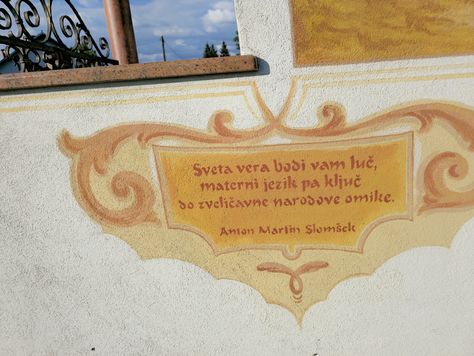 Sveta vera bodi vam luč,
materni jezik pa ključ
do zveličavne narodove omike.
Anton Martin Slomšek